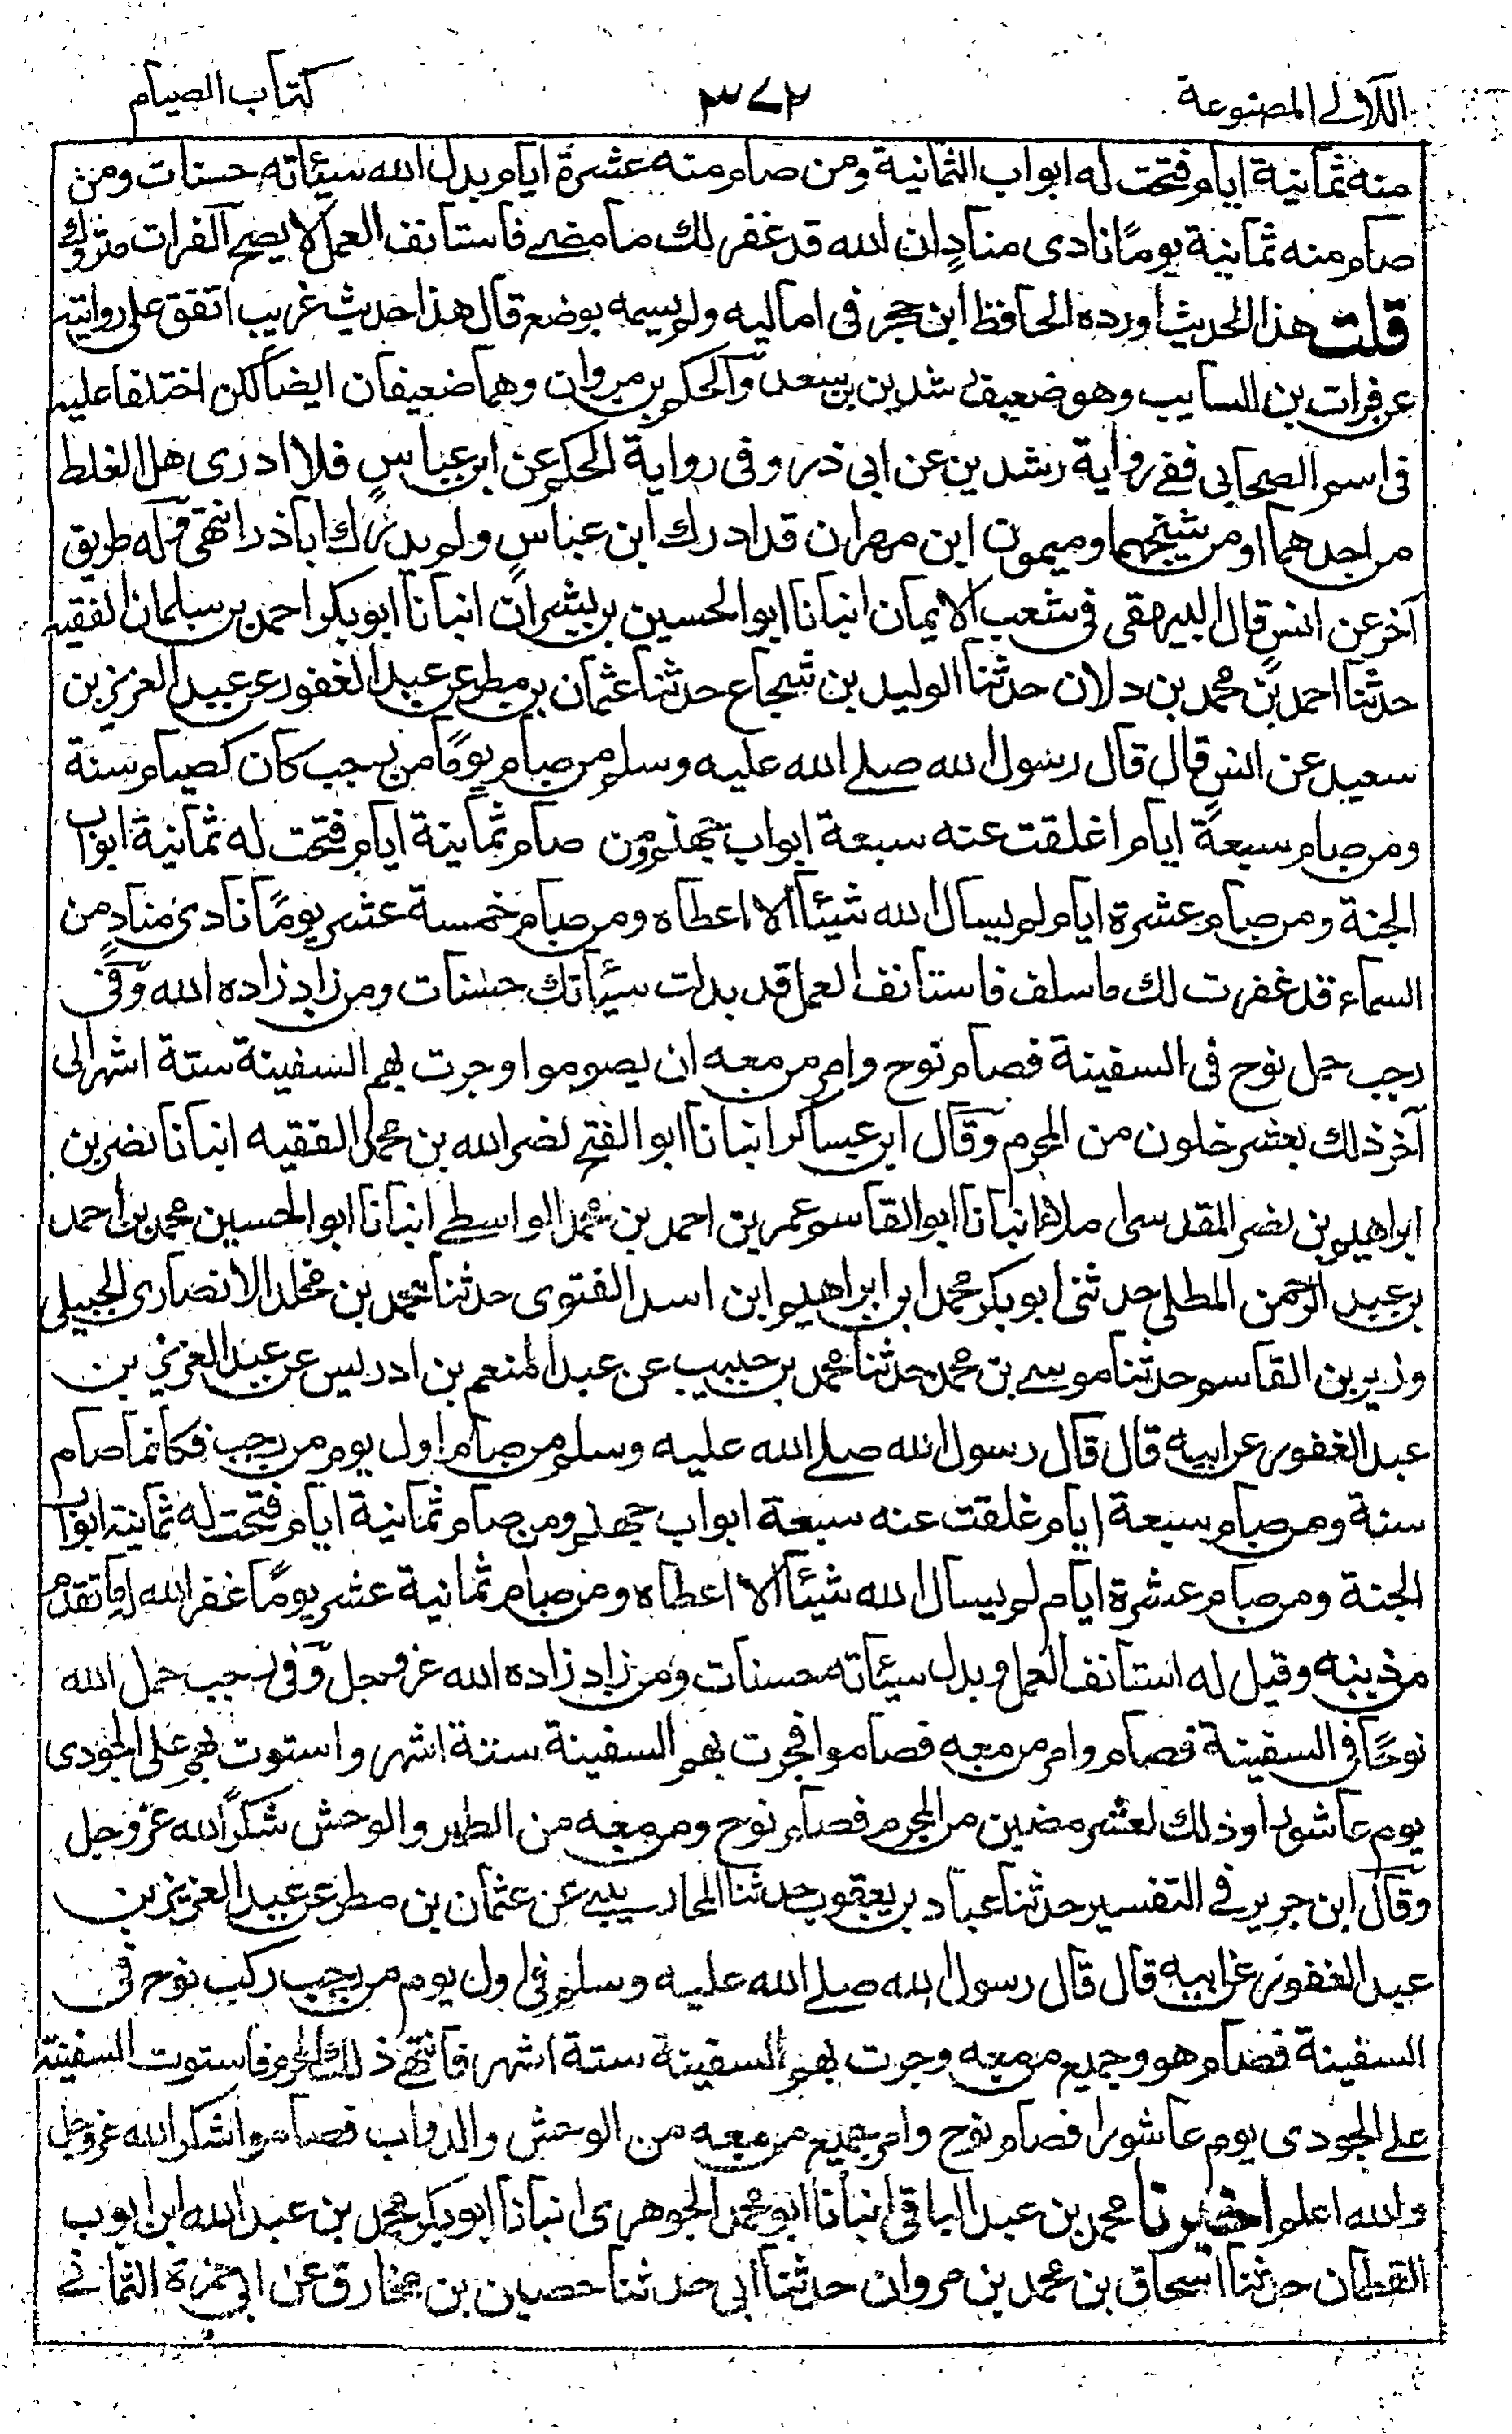 اللآلى المصنوعة
٣٧٢
كتاب الصيام
منه ثمانية ايام فتحت له ابواب الثمانية ومن صام منه عشرة ايام بدل الله سيئاته حسنات ومن
صام منه ثمانية يومًا نادى منادٍ ان الله قد غفر لك ما مضى فاستانف العمل لا يصح الفرات متروك
قلت هذا الحديث اورده الحافظ ابن حجر فى اماليه ولم يسمه بوضع قال هذا حديث غريب اتفق على روايته
عن فرات بن السايب وهو ضعيف رشدين بن سعد والحكم بن مروان وهما ضعيفان ايضا لكن اختلفا عليه
فى اسم الصحابي ففى رواية رشدين عن ابى ذر وفى رواية الحكم عن ابن عباسٍ فلا ادرى هل الغلط
من احدهما او من شيخهما وميمون ابن مهران قد ادرك ابن عباسٍ ولم يدرك اباذر انتهى وله طريق
آخر عن انسٍ قال البيهقى فى شعب الايمان انبانا ابو الحسين بن بشران انبانا ابو بكر احمد بن سلمان الفقيه
حدثنا احمد بن محمد بن دلان حدثنا الوليد بن شجاع حدثنا عثمان بن مطر عن عبد الغفور عن عبد العزيز بن
سعيد عن انسٍ قال قال رسول الله صلى الله عليه وسلم من صام يومًا من رجب كان كصيام سنة
ومن صام سبعة ايام اغلقت عنه سبعة ابواب جهنم ومن صام ثمانية ايام فتحت له ثمانية ابواب
الجنة ومن صام عشرة ايام لم يسال الله شيئًا الا اعطاه ومن صام خمسة عشر يومًا نادى منادٍ من
السماء قد غفرت لك ما سلف فاستانف العمل قد بدلت سيئاتك حسنات ومن زاد زاده الله وفى
رجب حمل نوح فى السفينة فصام نوح وامر من معه ان يصوموا وجرت بهم السفينة ستة اشهر الى
آخر ذلك بعشر خلون من المحرم وقال ابن عساكر انبانا ابو الفتح نصر الله بن محمد الفقيه انبانا نصر بن
ابراهيم بن نصر المقدسى املاء انبانا ابو القاسم عمر بن احمد بن محمد الواسطى انبانا ابو الحسين محمد بن احمد
بن عبد الرحمن الملطى حدثنى ابو بكر محمد ابن ابراهيم ابن اسد الفتوى حدثنا محمد بن مخلد الانصارى الجبيلى
وزير بن القاسم حدثنا موسى بن محمد حدثنا محمد بن حبيب عن عبد المنعم بن ادريس عن عبد العزيز بن
عبد الغفور عن ابيه قال قال رسول الله صلى الله عليه وسلم من صام اول يوم من رجب فكانما صام
سنة ومن صام سبعة ايام غلقت عنه سبعة ابواب جهنم ومن صام ثمانية ايام فتحت له ثمانية ابواب
الجنة ومن صام عشرة ايام لم يسال الله شيئًا الا اعطاه ومن صام ثمانية عشر يومًا غفر الله له ما تقدم
من ذنبه وقيل له استانف العمل وبدل سيئاته حسنات ومن زاد زاده الله عز وجل وفى رجب حمل الله
نوحًا فى السفينة فصام وامر من معه فصاموا فجرت بهم السفينة ستة اشهر واستوت بهم على الجودى
يوم عاشورا وذلك لعشر مضين من المحرم فصام نوح ومن معه من الطير والوحش شكرًا لله عز وجل
وقال ابن جرير فى التفسير حدثنا عباد بن يعقوب حدثنا المحاربى عن عثمان بن مطر عن عبد العزيز بن
عبد الغفور عن ابيه قال قال رسول الله صلى الله عليه وسلم فى اول يوم من رجب ركب نوح فى
السفينة فصام هو وجميع من معه وجرت بهم السفينة ستة اشهر فانتهى ذلك المحرم فاستوت السفينة
على الجودى يوم عاشورا فصام نوح وامر جميع من معه من الوحش والدواب فصاموا شكرا لله عز وجل
والله اعلم اخبرنا محمد بن عبد الباقى انبانا ابو محمد الجوهرى انبانا ابو بكر محمد بن عبد الله ابن ايوب
القطان حدثنا اسحاق بن محمد بن مروان حدثنا ابى حدثنا حصين بن مخارق عن ابى حمزة الثمانى